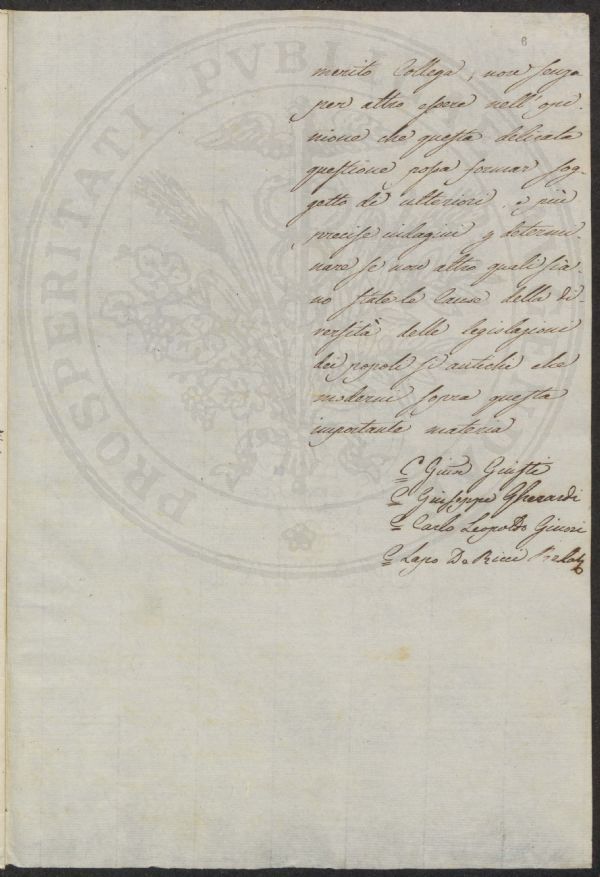 6
merito Collega, non senza
per altro essere nell'opi-
nione che questa delicata
questione possa formar sog-
getto de ulteriori, e più
precise indagini p determi-
nare se non altro quali sia-
no state le Cause della di-
versità delle legislazioni
dei popoli sì antichi che
moderni sopra questa
importante materia
Giusti
Giuseppe Gherardi
Carlo Leopoldo Ginori
Lapo De Ricci
PROSPERITATI PVBLICAE